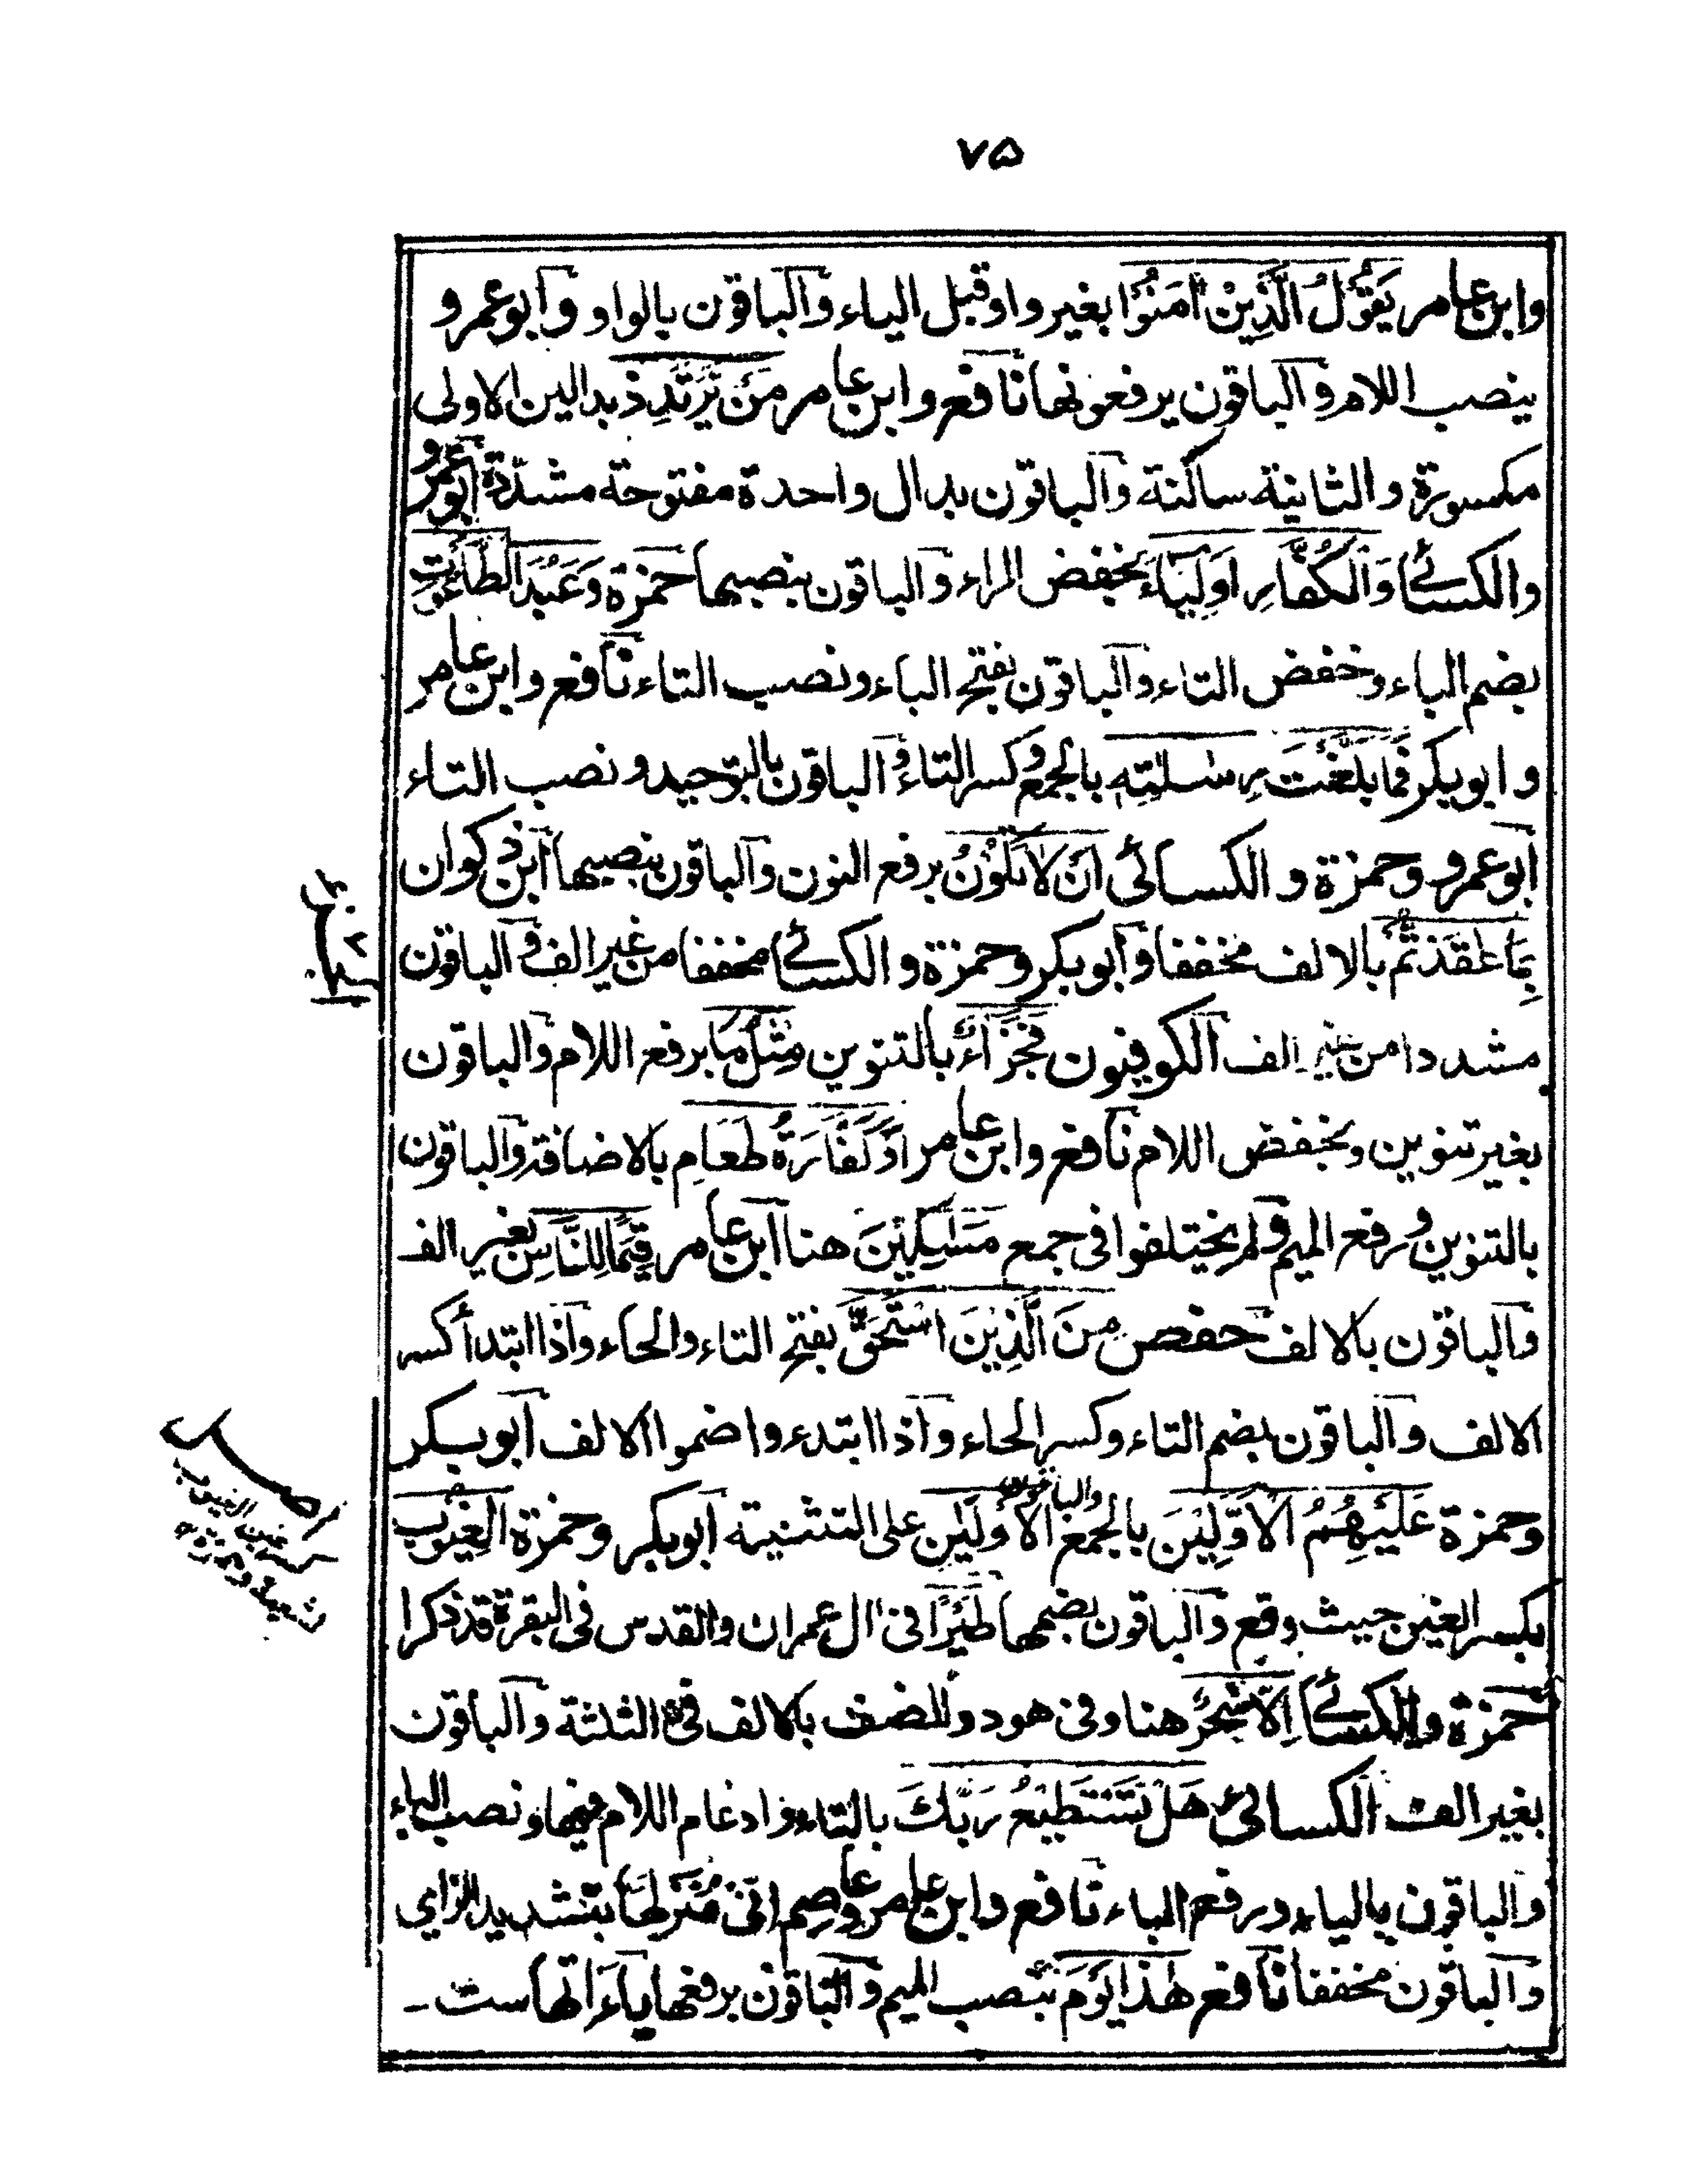 ۷۵
وابن عامر يَقُوْلُ الَّذِيْنَ اٰمَنُوْا بغير واو قبل الياء والباقون بالواو وابو عمرو
ينصب اللام والباقون يرفعونها نافع وابن عامر مَنْ يَرْتَدِدْ بدالين الاولى
مكسورة والثانية ساكنة والباقون بدال واحدة مفتوحة مشدّدة ابو عمرو
والكسائى وَالْكُفَّارِ اَوْلِيَاءَ بخفض الراء والباقون بنصبها حمزة وَعَبُدَ الطَّاغُوْتِ
بضم الباء وخفض التاء والباقون بفتح الباء ونصب التاء نافع وابن عامر
وابو بكر فَمَا بَلَّغْتَ رِسٰلٰتِهٖ بالجمع وكسر التاء والباقون بالتوحيد ونصب التاء
ابو عمرو وحمزة والكسائى اَنْ لَا تَكُوْنُ برفع النون والباقون بنصبها ابن ذكوان
بِمَا عٰقَدْتُّمْ بالالف مخففا وابو بكر وحمزة والكسائى مخففا من غير الف والباقون
مشددا من غير الف الكوفيون فَجَزَآءٌ بالتنوين مِثْلُ مَا برفع اللام والباقون
بغير تنوين وبخفض اللام نافع وابن عامر اَوْ كَفَّارَةُ طَعَامِ بالاضافة والباقون
بالتنوين ورفع الميم ولم يختلفوا فى جمع مَسٰكِيْنَ هنا ابن عامر قِيَمًا لِلنَّاسِ بغير الف
والباقون بالالف حفص مِنَ الَّذِيْنَ اسْتَحَقَّ بفتح التاء والحاء واذا ابتدأ كسر
الالف والباقون بضم التاء وكسر الحاء واذا ابتدءوا ضموا الالف ابو بكر
وحمزة عَلَيْهِمُ الْاَوَّلِيْنَ بالجمع والباقون الْاَوْلَيٰنِ على التثنية ابو بكر وحمزة الْغِيُوْبِ
بكسر الغين حيث وقع والباقون بضمها طَيْرًا فى اٰل عمران والقدس فى البقرة قد ذكرا
حمزة والكسائى اِلَّا سٰحِرٌ هنا وفى هود والصف بالالف فى الثلثة والباقون
بغير الف الكسائى هَلْ تَسْتَطِيْعُ رَبَّكَ بالتاء وادغام اللام فيها ونصب الباء
والباقون بالياء ورفع الباء نافع وابن عامر وعاصم اِنِّىْ مُنَزِّلُهَا بتشديد الزاى
والباقون مخففا نافع هٰذَا يَوْمَ بنصب الميم والباقون برفعها ياءَاتها ست ــ